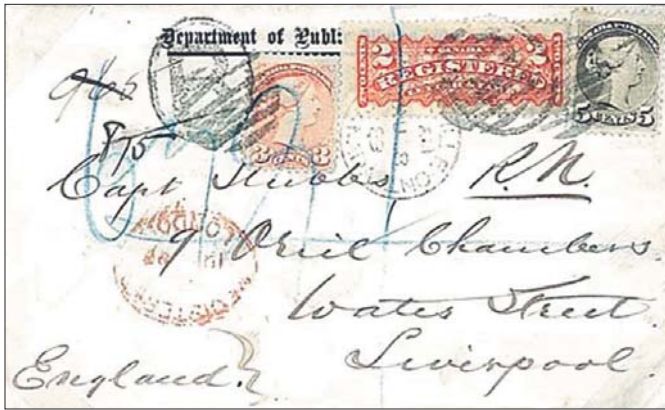 Department of Publi
2 REGISTERED 2
5 CENTS 5
3 3
875
Capt Stubbs, R.N.
9 Oriel Chambers
Water Street
Liverpool.
England.